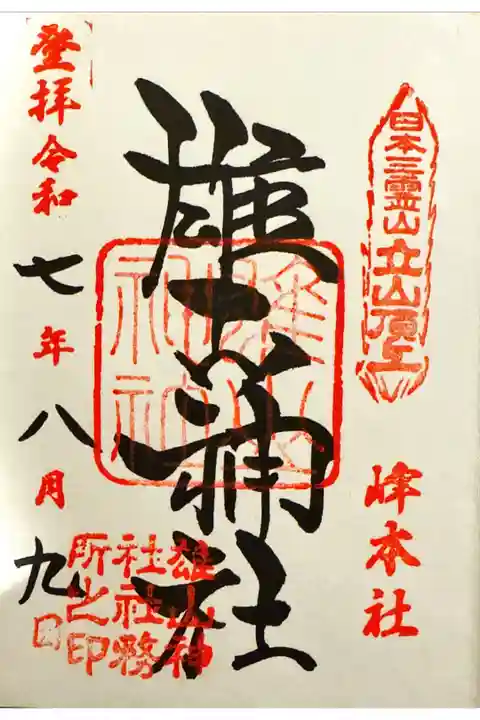 日本三霊山立山頂上
峰本社
雄山神社
雄山神社
雄山神
社社務
所之印
登拝令和七年八月九日